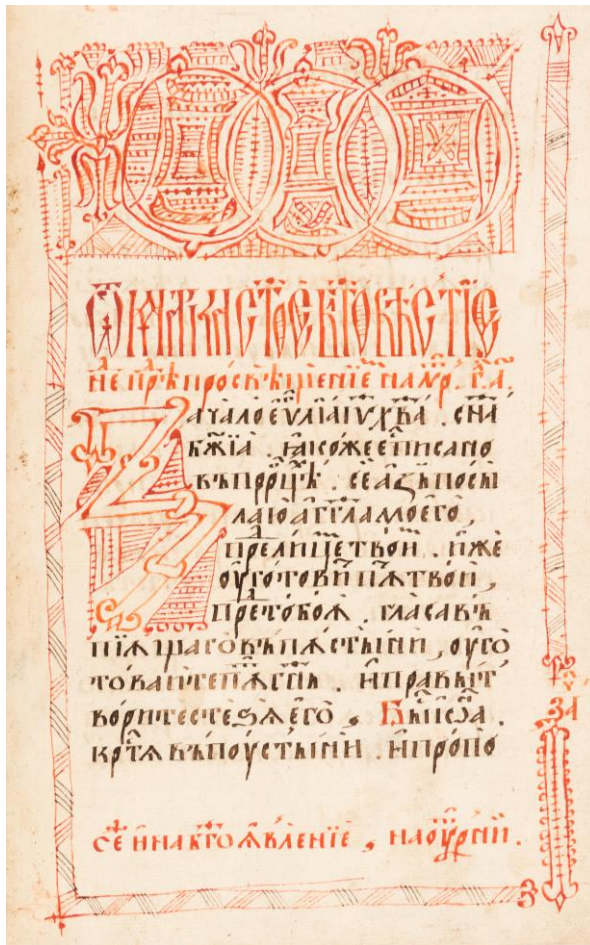 Ѿ МАРКА СТ҃ОЕ БЛ҃ГОВѢСТІЕ
неⷣ прѣⷣ просвѣщеніеⷨ, на лѵⷮрⷢ. гл҃а.
Зачало еѵⷢлїа і҃ѵ х҃ва. с҃на
б҃жїа. ꙗкоже еⷭ писано
въ прⷪрцѣхь. се азь посы
лаю аг҃гла моего,
прⷣе лицеⷨ твоиⷨ. иже
оуготовиⷮ пѫть твои,
прⷣе тобоѫ. глⷭа въ
пїѫщаго въ пѫстыни, оуго
товаите пѫⷮ гⷭпнь. и правы т
ворите стеѕѧ его. Бы іѡ҃а.
крⷭтѧ въ поустыни. и пропо
се и на б҃гоꙗвленїе, на